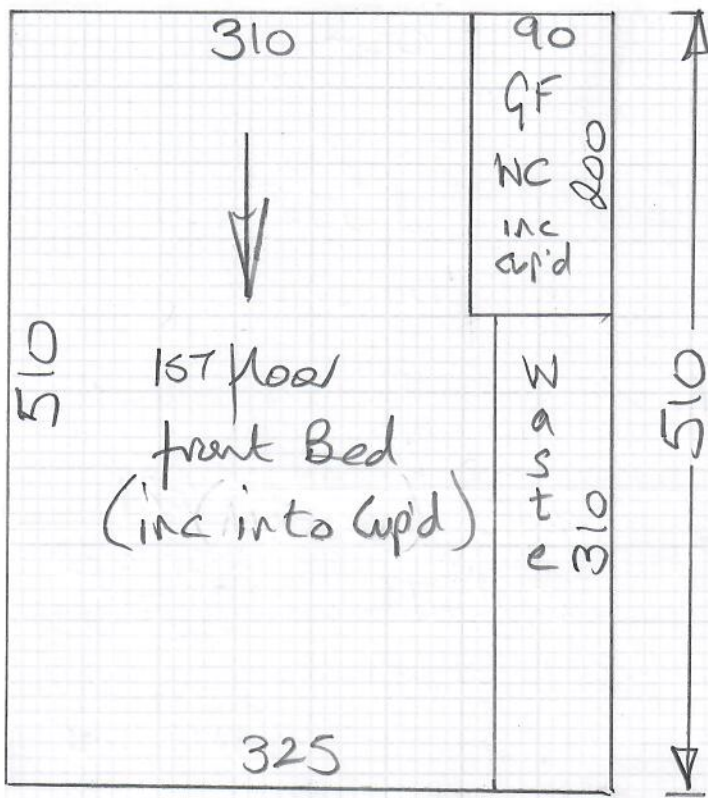 310
90
GF
WC
inc
cup'd
200
510
1ST floor
front Bed
(inc into Cup'd)
Waste
310
510
325